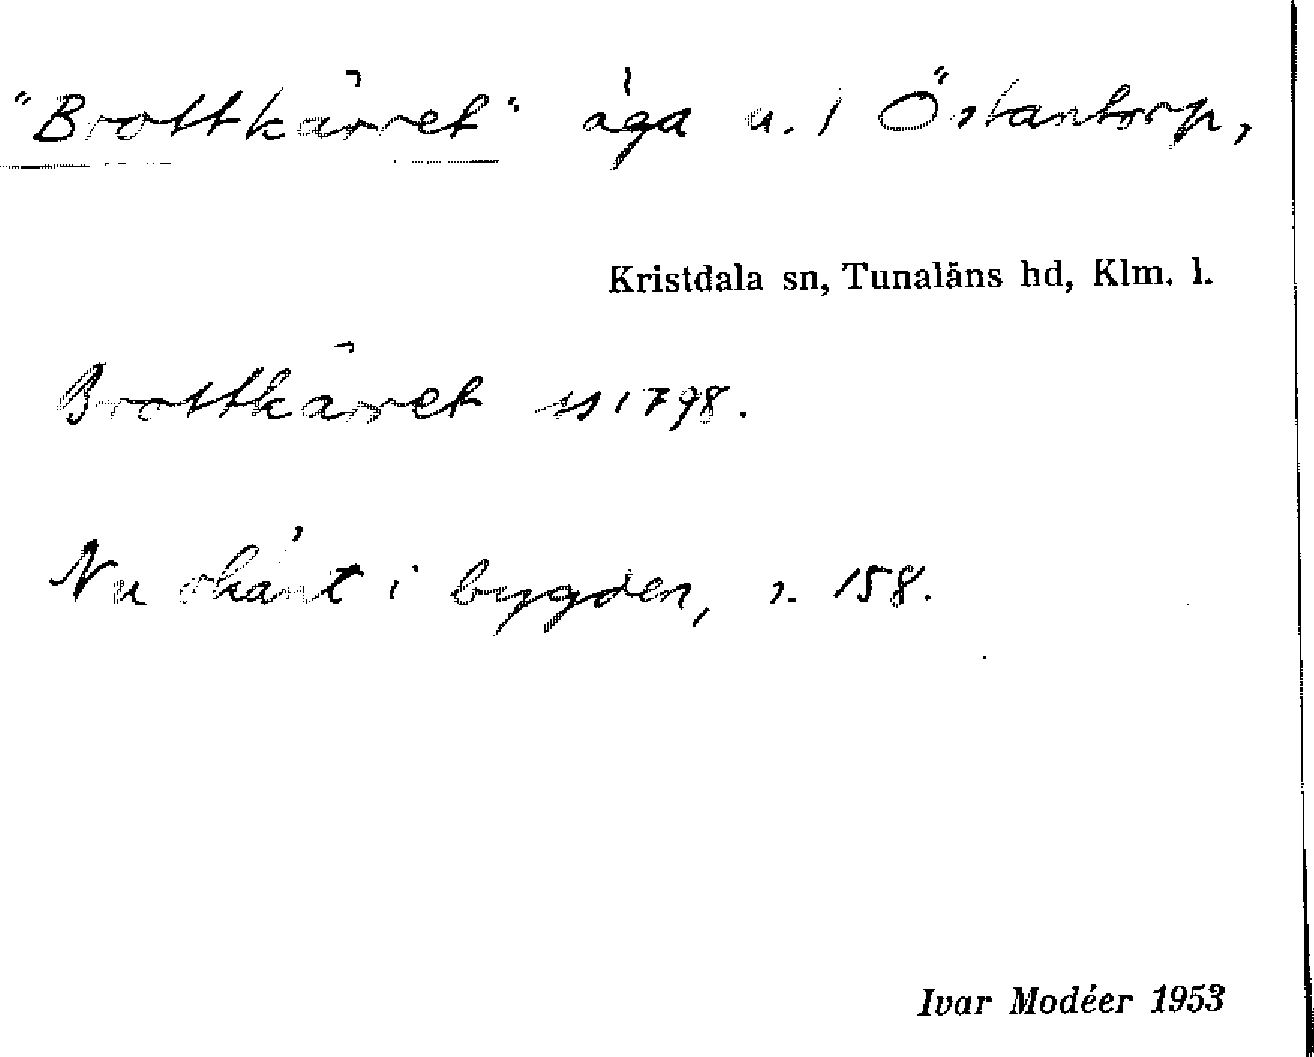 "Brottkärret" äga u. 1 Östantorp,
Kristdala sn, Tunaläns hd, Klm. l.
Brottkärret ss 1798.
Nu okänt i bygden, s. 158.
Ivar Modéer 1953